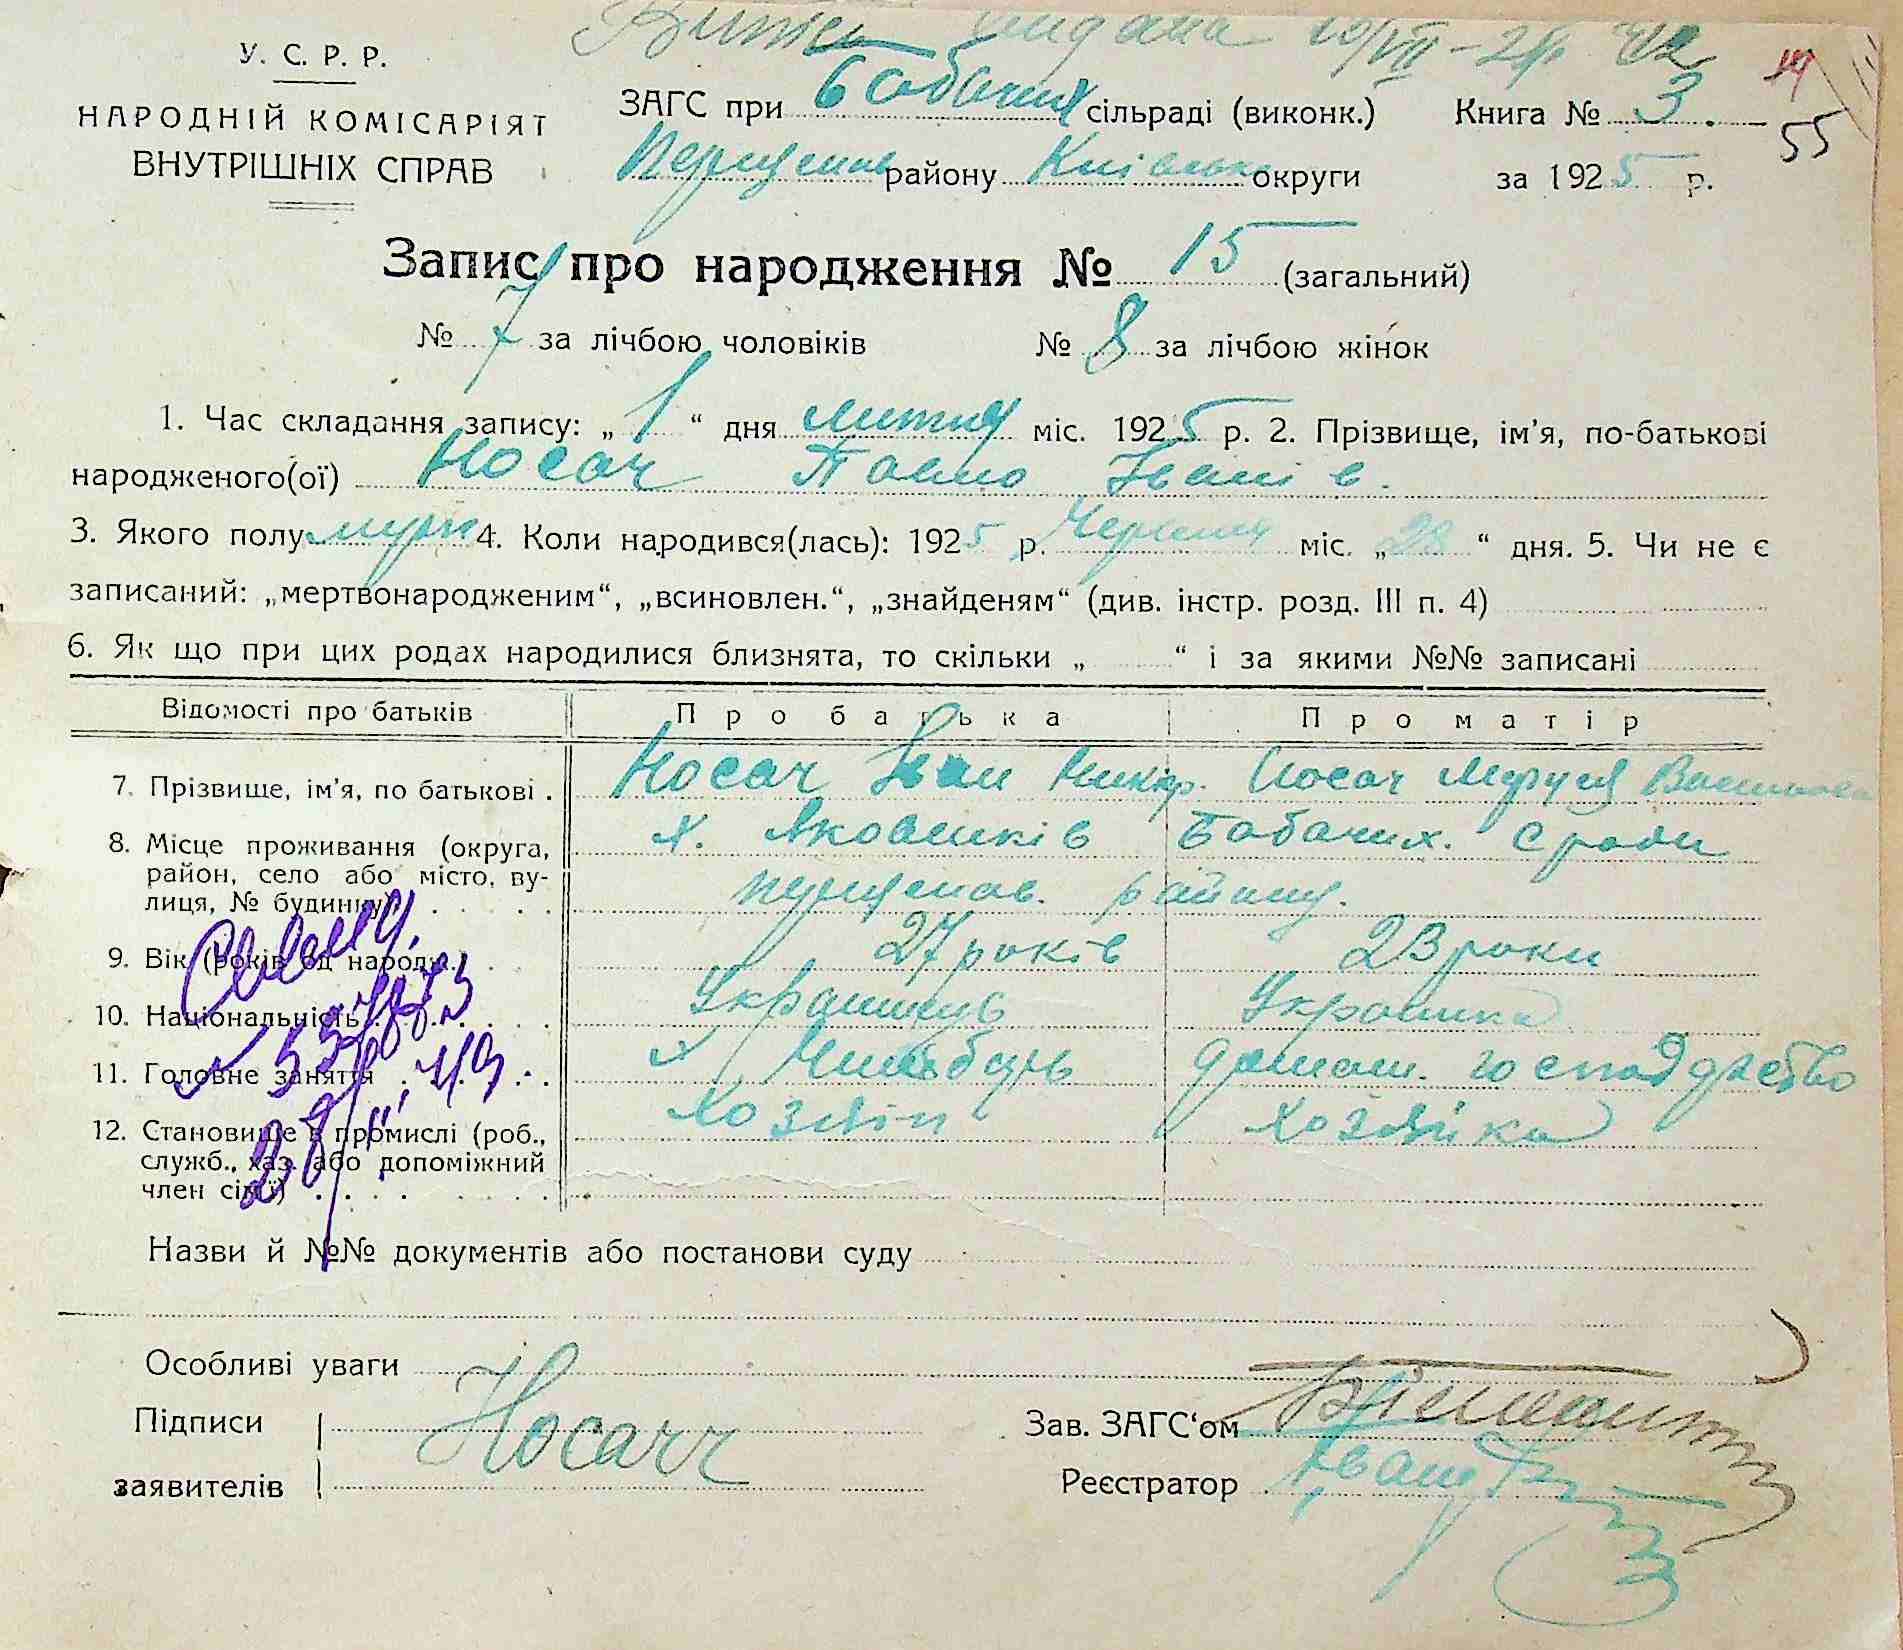 У. С. Р. Р.
НАРОДНІЙ КОМІСАРІЯТ
ВНУТРІШНІХ СПРАВ
видана 10/VII
ЗАГС при сільраді (виконк.) Книга № 3.
55
району Київської округи за 1925 р.
Запис про народження № 15 (загальний)
№ 7 за лічбою чоловіків № 8 за лічбою жінок
1. Час складання запису: „ 1 “ дня липня міс. 1925 р. 2. Прізвище, ім’я, по-батькові
народженого(ої) Носач Павло Іванів.
3. Якого полу муж 4. Коли народився(лась): 1925 р. Червня міс. „ 28 “ дня. 5. Чи не є
записаний: „мертвонародженим“, „всиновлен.“, „знайденям“ (див. інстр. розд. III п. 4)
6. Як що при цих родах народилися близнята, то скільки „ “ і за якими №№ записані
Відомості про батьків Про батька Про матір
7. Прізвище, ім’я, по батькові . Носач Іван Носач Маруся
8. Місце проживання (округа, х. Яковликів
район, село або місто, ву-
лиця, № будинку) району.
9. Вік (років од народж.) 27 років 23 роки
10. Національність Українець Українка
11. Головне заняття Хлібороб домаш. господарство
12. Становище в промислі (роб., Хозяїн Хозяйка
служб., хаз. або допоміжний
член сім’ї)
Назви й №№ документів або постанови суду
Особливі уваги
Підписи Носач Зав. ЗАГС‘ом
заявителів Реєстратор